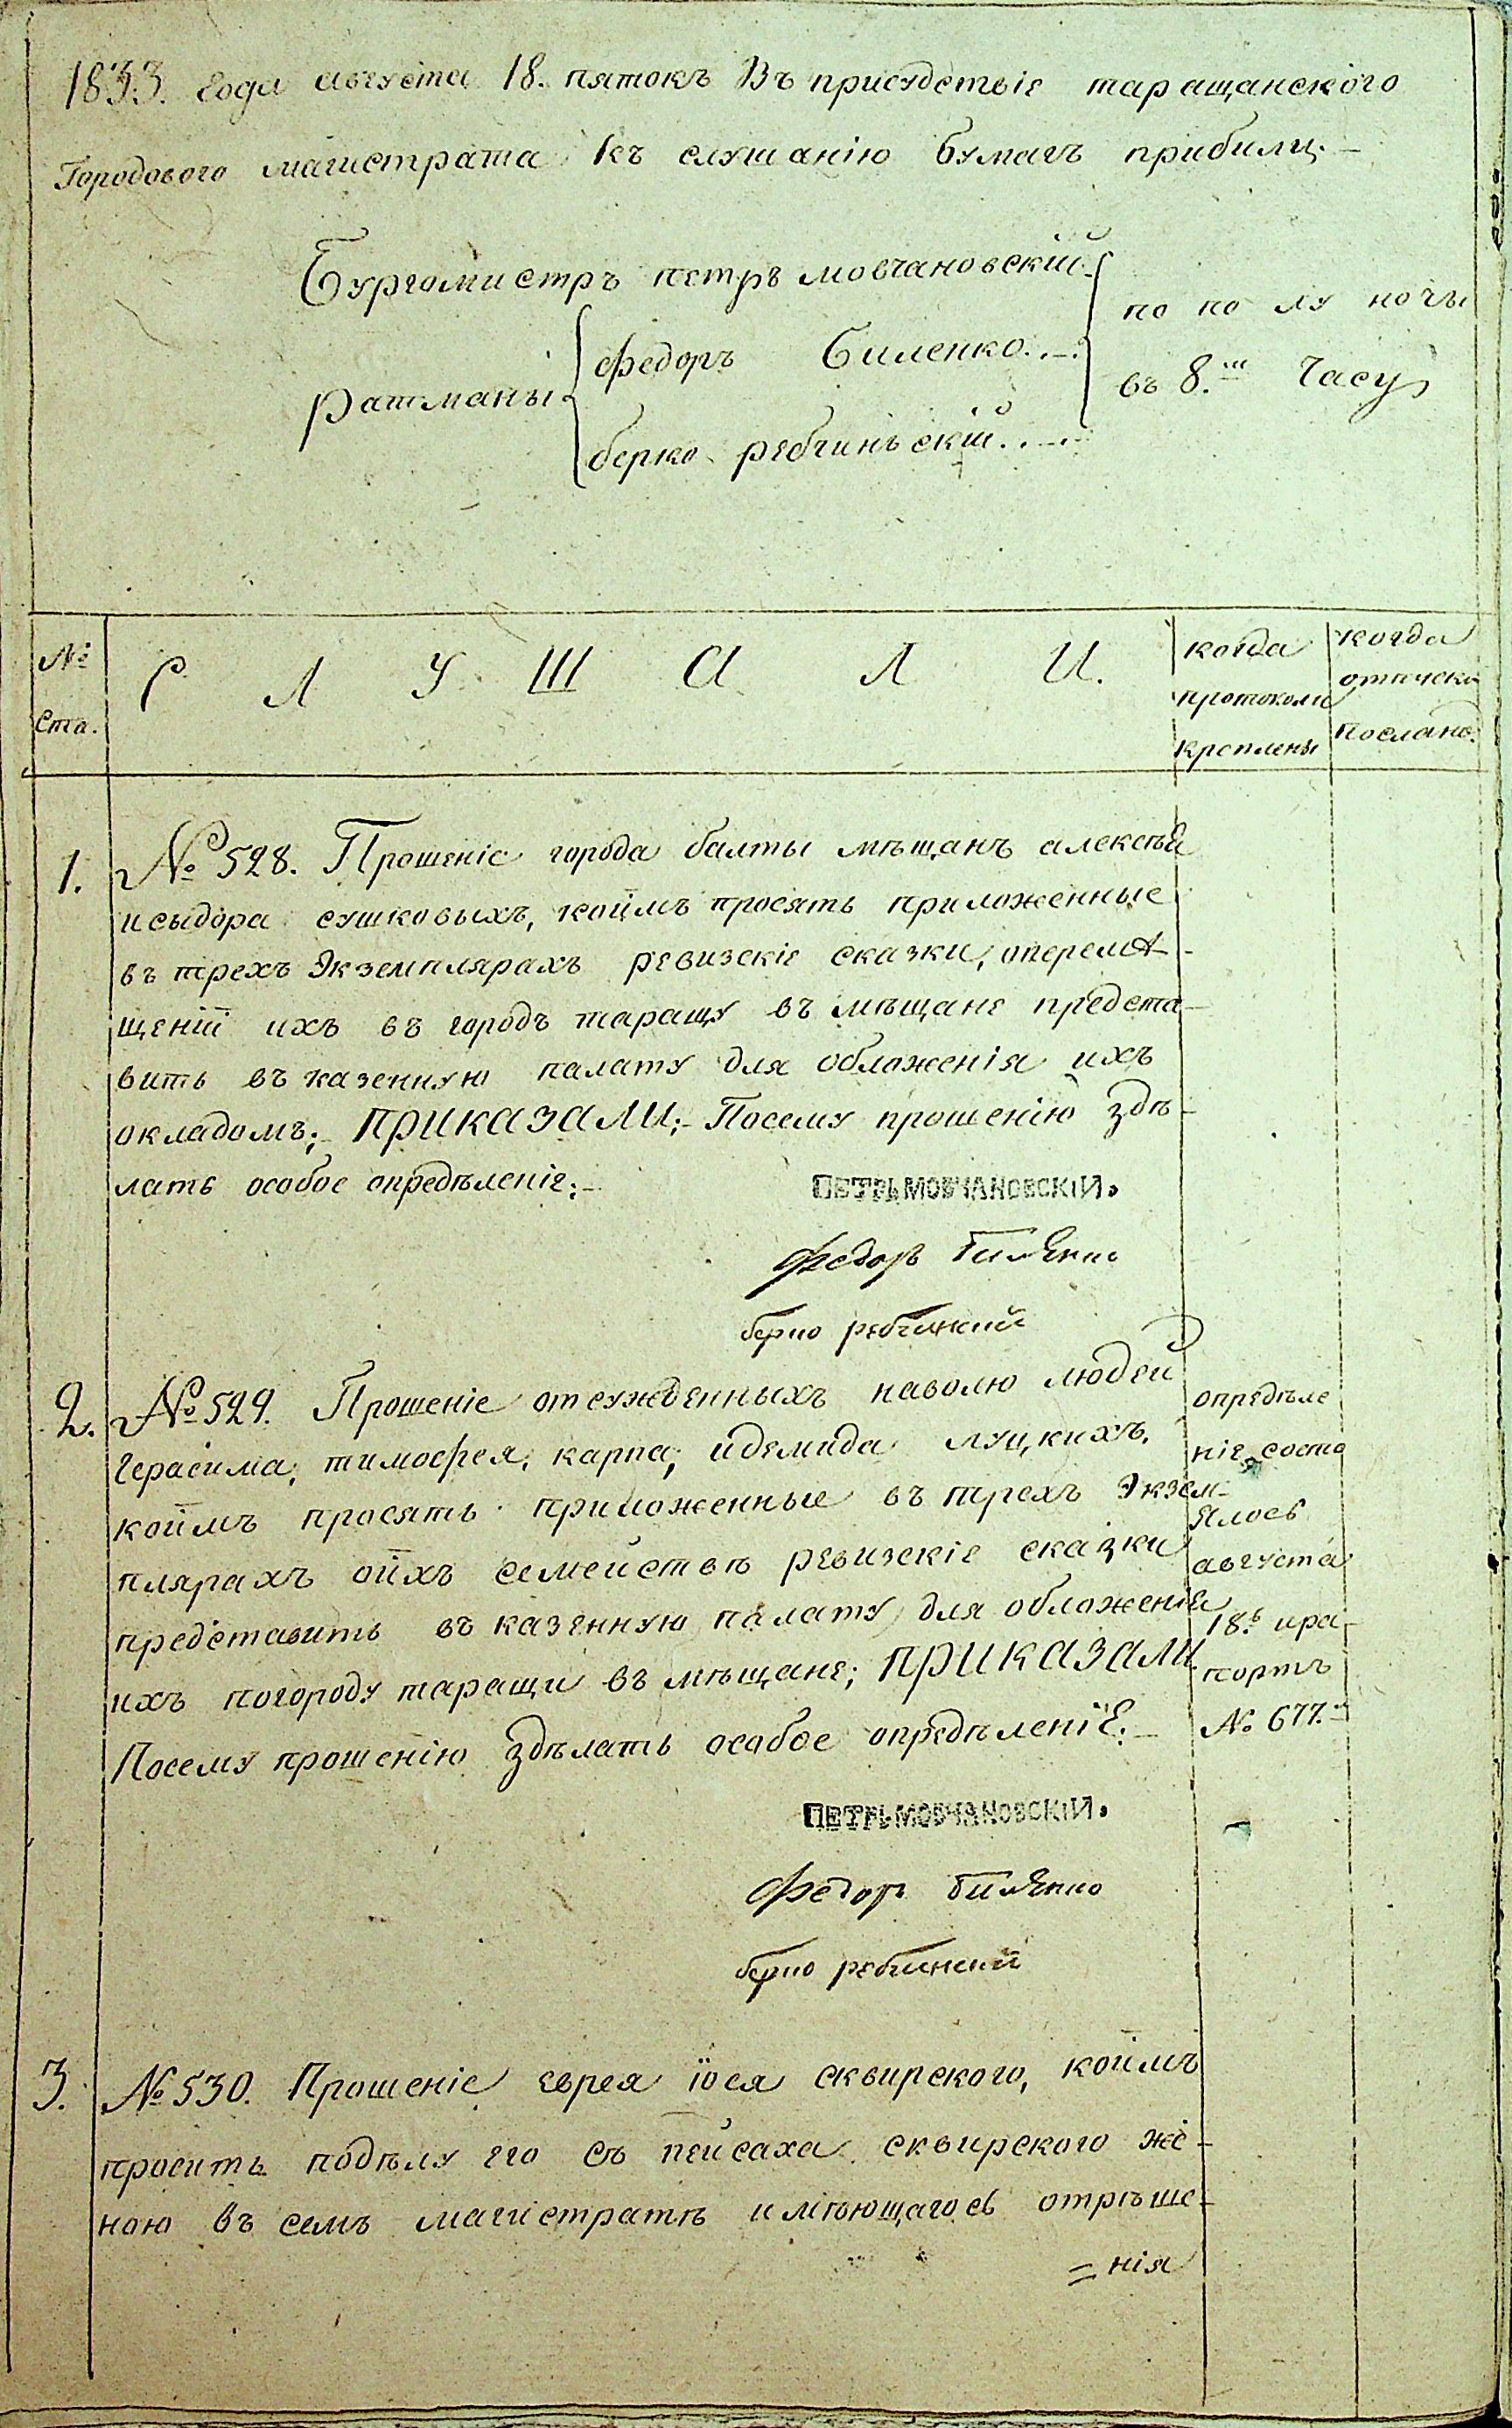 1833. года августа 18. пятокъ Въ присудствіе таращанского
Городового магистрата къ слушанію бумагъ прибили.
Бургомистръ петръ мовчановскій
по по лу ночы
Ратманы
федоръ Биленко
въ 8.м Часу
берко ребчинъскій
№
ста.
С Л У Ш А Л И.
когда
протоколы
креплены
когда
отпуски
посланы
1. № 528. Прошеніе города балты мѣщанъ алексѣя
исыдора сушковыхъ, коимъ просятъ приложенные
въ трехъ Экземплярахъ ревизскіе сказки, оперемѣ-
щеніи ихъ въ городъ таращу въ мѣщане предста-
вить въ казенную палату для обложенія ихъ
окладомъ; ПРИКАЗАЛИ; Посему прошенію здѣ-
лать особое опредѣленіе;
ПЕТРЪ МОВЧАНОВСКІЙ.
Федоръ Биленко
берко ребчинский
2. № 529. Прошеніе отсужденныхъ наволю людей
Герасима, тимофея, карпа, идемида луцкихъ,
коимъ просятъ приложенные въ трехъ Экзем-
плярахъ оихъ семействѣ ревизскіе сказки
представить въ казенную палату для обложеніе
ихъ погороду таращи въ мѣщане; ПРИКАЗАЛИ
Посему прошенію здѣлать особое опредѣленіе;
опредѣле
ніе состо
ялось
августа
18.ь ира-
портъ
№ 677.
ПЕТРЪ МОВЧАНОВСКІЙ.
Федоръ Биленко
берко ребчинский
3. № 530. Прошеніе еврея іося сквирского, коимъ
проситъ подѣлу его съ пейсаха сквирского же-
ною въ семъ магистратѣ имѣющагось отрѣше-
=нія